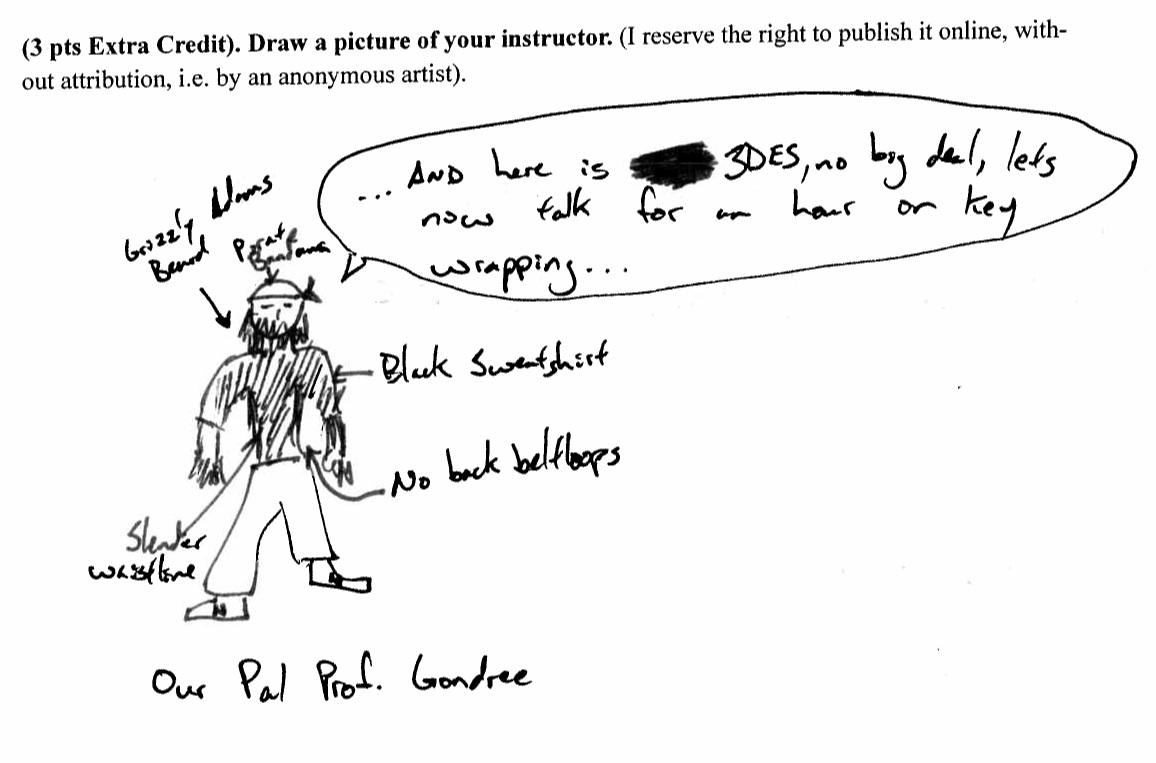 (3 pts Extra Credit). Draw a picture of your instructor. (I reserve the right to publish it online, with-
out attribution, i.e. by an anonymous artist).
... AND here is 3DES, no big deal, lets
now talk for an hour on key
wrapping...
Grizzly Adams
Beard
Pirate
Bandana
Black Sweatshirt
No back beltloops
Slender
waistline
Our Pal Prof. Gondree